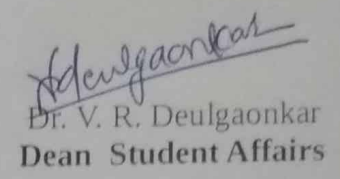 Deulgaonkar
Dr. V. R. Deulgaonkar
Dean Student Affairs